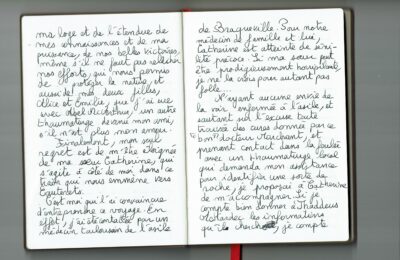 ma loge et de l'étendue de
mes connaissances et de ma
puissance, de nos belles victoires,
même s'il ne faut pas relâcher
nos efforts, qui nous permis
de protéger la nature, et
aussi de mes deux filles,
Alice et Emilie, que j'ai eue
avec Abel MacArthur, un autre
thaumaturge devenu mon ami,
s'il n'est plus mon époux.
Finalement, mon seul
regret est de m'être éloignée
de ma sœur Catherine, qui
s'agite à côté de moi dans ce
train qui nous emmène vers
C'est moi qui l'ai convaincue
d'entreprendre ce voyage. En
effet, j'ai été contactée par un
médecin toulousain de l'asile
de Braqueville. Pour notre
médecin de famille et lui,
Catherine est atteinte de sénilité
précoce. Si ma sœur peut
être prodigieusement horripilante,
je ne la crois pas pour autant
folle.
N'ayant aucune envie de
la voir enfermée à l'asile, et
sautant sur l'excuse toute
trouvée des cures données par ce
bon docteur, je
pris contact dans la foulée
avec un thaumaturge local
qui demanda mon assistance
pour identifier une sorte de
roche, je proposai à Catherine
de m'accompagner. Si je
compte bien donner à Thaddeus
les informations
qu'il cherche, je compte